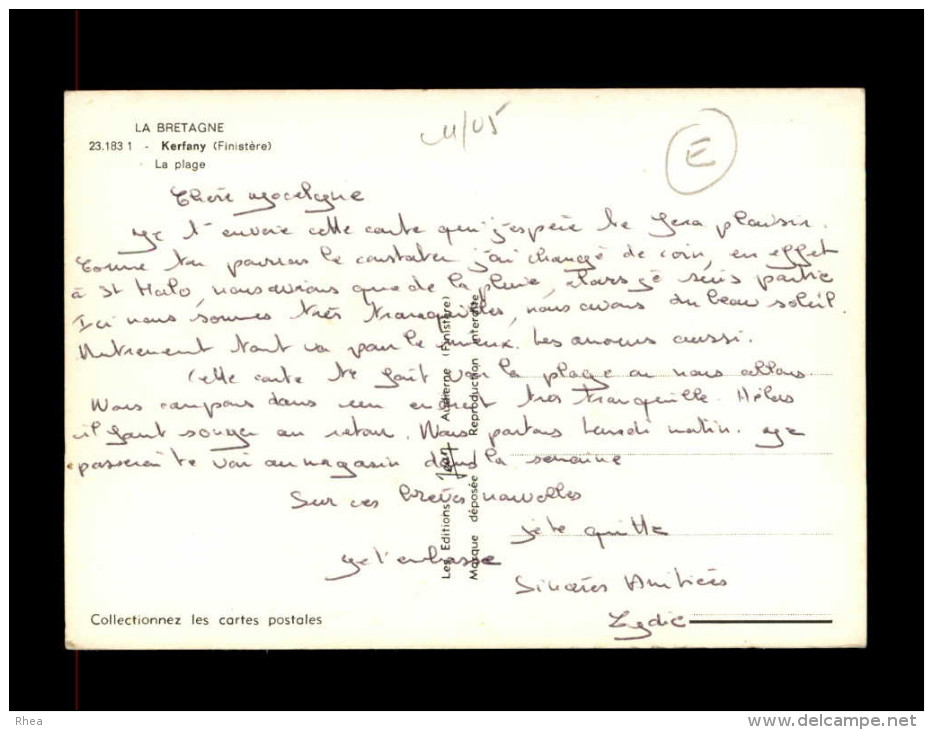 LA BRETAGNE
23.183 1 - Kerfany (Finistère)
La plage
11/05
E
Chère Jocelyne
Je t'envoie cette carte qui j'espère te fera plaisir.
Comme tu pourras le constater j'ai changé de coin, en effet
à St Malo, nous avions que de la pluie, alors je suis partie
Ici nous sommes très tranquilles, nous avons du beau soleil.
Autrement tout va pour le mieux. Les amours aussi.
Cette carte te fait voir la plage ou nous allons
Nous campons dans un endroit très tranquille. Hélas
il faut songer au retour. Nous partons Lundi matin. Je
passerai te voir au magasin dans la semaine
Sur ces brèves nouvelles
je te quitte
Je t'embrasse
Sincères Amitiés
Lydie
Les Editions Jean Audierne (Finistère)
Marque déposée Reproduction interdite
Collectionnez les cartes postales
Rhea
www.delcampe.net